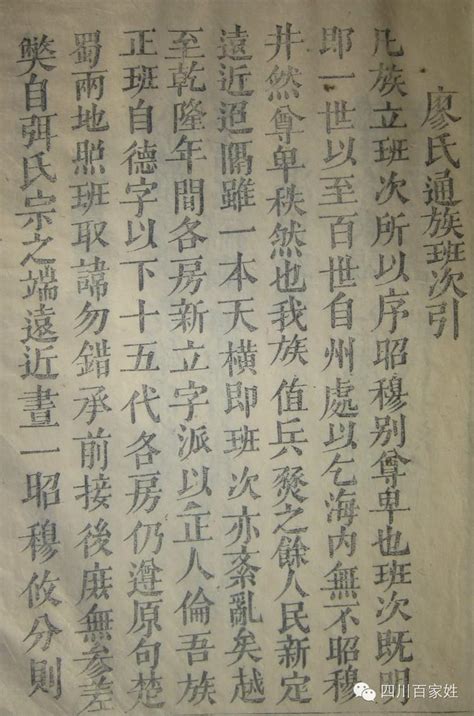 廖氏通族班次引
凡族立班次所以序昭穆别尊卑也班次既明
即一世以至百世自州處以乞海内無不昭穆
井然尊卑秩然也我族值兵燹之餘人民新定
遠近迢隔雖一本天橫即班次亦紊亂矣越
至乾隆年間各房新立字派以正人倫吾族
正班自德字以下十五代各房仍遵原句楚
蜀兩地照班取諱勿錯承前接後庶無參差
獘自弭氏宗之端遠近畫一昭穆攸分則
四川百家姓